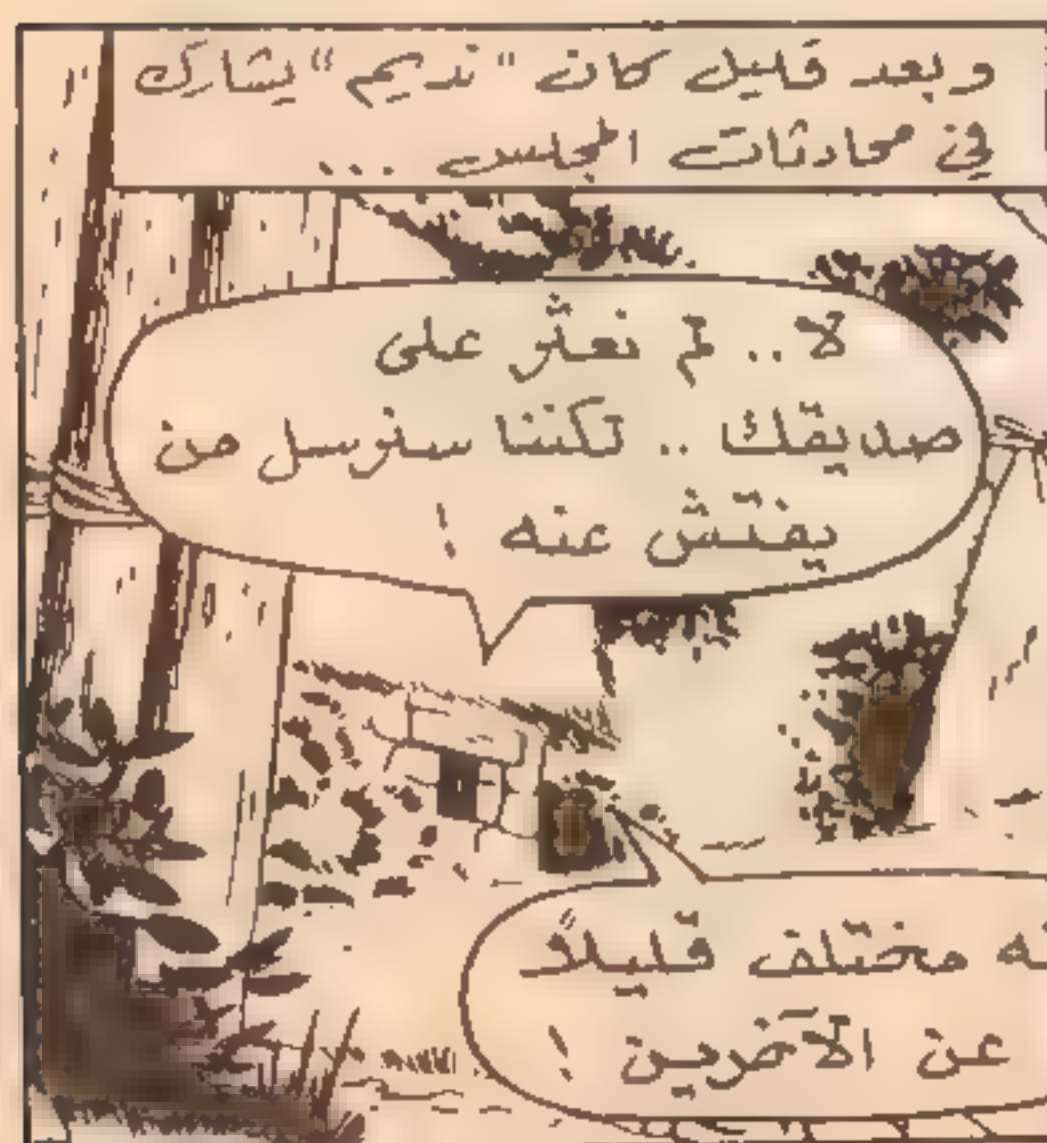 وبعد قليل كان "نديم" يشارك
في محادثات المجلس ...
لا .. لم نعثر على
صديقك .. لكننا سنرسل من
يفتش عنه !
مختلف قليلاً
عن الآخرين !